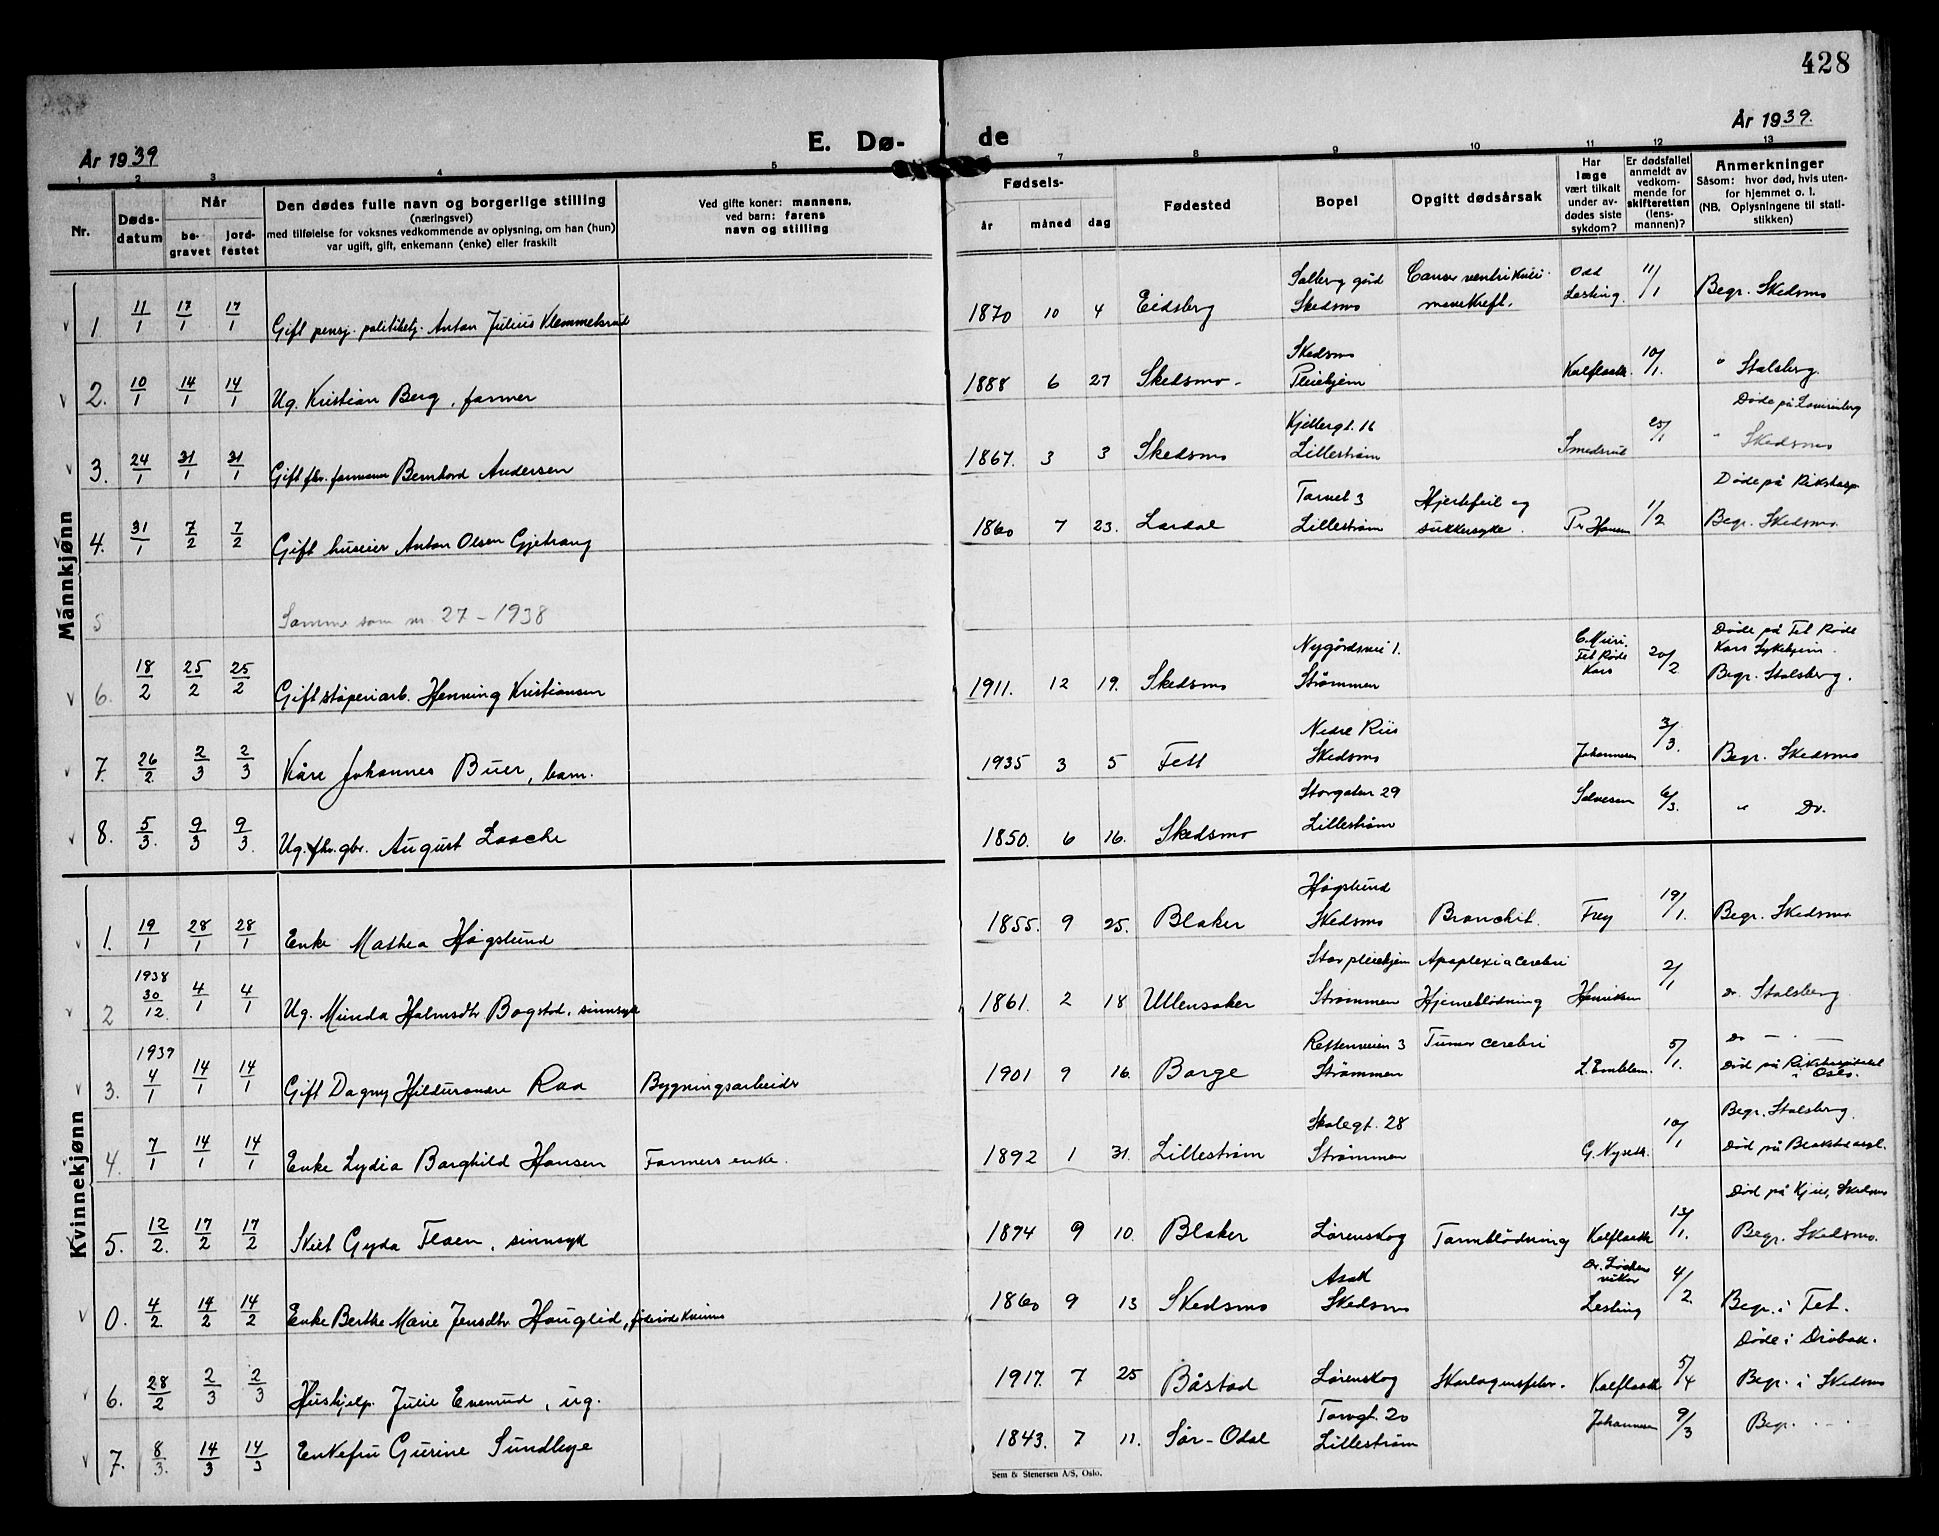 428
År 1939
E. Dø-
de
År 1939.
1 2 3 4 5 7 8 9 10 11 12 13
Nr.
Døds-
datum
Når
be-
gravet
jord-
festet
Den dødes fulle navn og borgerlige stilling
(næringsvei)
med tilføielse for voksnes vedkommende av oplysning, om han (hun)
var ugift, gift, enkemann (enke) eller fraskilt
Ved gifte koner: mannens,
ved barn: farens
navn og stilling
Fødsels-
år måned dag
Fødested
Bopel
Opgitt dødsårsak
Har
læge
vært tilkalt
under av-
dødes siste
sykdom?
Er dødsfallet
anmeldt av
vedkom-
mende for
skifteretten
(lens-
mannen)?
Anmerkninger
Såsom: hvor død, hvis uten-
for hjemmet o. l.
(NB. Oplysningene til stati-
stikken)
Mannkjønn
1. 11/1 17/1 17/1 Gift pensj. politibetj. Anton Julius Klemmetsrud 1870 10 4 Eidsberg Solberg gård Skedsmo Cancer ventrikuli mavekreft. Odd Lesting 11/1 Begr. Skedsmo
2. 10/1 14/1 14/1 Ug. Kristian Berg, farmer 1888 6 27 Skedsmo - Skedsmo Pleiehjem Kalflaath 10/1. " Stalsberg.
3. 24/1 31/1 31/1 Gift fhv. formann Bernhard Andersen 1867. 3 3 Skedsmo Kjellergt. 16 Lillestrøm Smedsrud 25/1 Døde på Lovisenberg " Skedsmo
4. 31/1 7/2 7/2 Gift huseier Anton Olsen Gjetrang 1860 7 23. Lardal Torvet 3 Lillestrøm Hjertefeil og sukkersyke. Pr. Hansen 1/2 Døde på Rikshosp. Begr. Skedsmo.
5 Samme som nr. 27 - 1938
6. 18/2 25/2 25/2 Gift støperiarb. Henning Kristiansen 1911. 12 19. Skedsmo Nygårdsvei 1. Strømmen Fet Røde Kors 20/2 Døde på Fet Røde Kors Sykehjem. Begr. Stalsberg.
7. 26/2. 2/3 2/3 Kåre Johannes Buer, barn. 1935 3 5 Fett Nedre Riis Skedsmo Johannesen 3/3. Begr. Skedsmo
8. 5/3. 9/3 9/3. Ug. fhv. gbr. August Laache 1850. 6 16. Skedsmo Storgaten 29 Lillestrøm Salvesen 6/3. " Do.
Kvinnekjønn
1. 19/1 28/1 28/1 Enke Mathea Høgslund 1855. 9 25. Blaker Høgslund Skedsmo Bronchit. Frey 19/1. Begr. Skedsmo
2 1938 30/12. 4/1 4/1 Ug. Minda Halmsdtr Bogstad, sinnsyk 1861. 2 18 Ullensaker Stor pleiehjem Strømmen Apoplexia cerebri Hjerneblødning Henriksen 2/1 do. Stalsberg
3. 1939 4/1 14/1 14/1 Gift Dagny Hildurandre Raa Bygningsarbeider 1901 9 16. Borge Strømmen Tumor cerebri L. Emblem. 5/1. do - Død på Rikshospitalet i Oslo.
4. 7/1 14/1 14/1 Enke Lydia Borghild Hansen Farmers enke. 1892 1 31. Lillestrøm Skolegt. 28 Strømmen 10/1 Begr. Stalsberg.
5. 12/2. 17/2 17/2 Skilt Gyda Floen, sinnsyk 1894 9 10. Blaker Lørenskog Tarmblødning Kalflaath 13/1. Begr. Skedsmo.
0. 4/2. 14/2 14/2 Enke Berthe Marie Jensdtr Hauglid, føderådskvinne 1860 9 13 Skedsmo Asak Skedsmo Lesting 4/2 Begr. i Fet.
6. 28/2 2/3 2/3 Hushjelp. Julie Evenrud, ug. 1917. 7 25 Båstad Lørenskog Skarlagensfeber. Kalflaath 5/4 Døde i Drøbak. Begr. i Skedsmo
7. 8/3. 14/3 14/3 Enkefru Gurine Sundbye 1843. 7 11. Sør-Odal Torvgt. 20 Lillestrøm Johannesen 9/3 Begr. - - -
Sem & Stenersen A/S, Oslo.